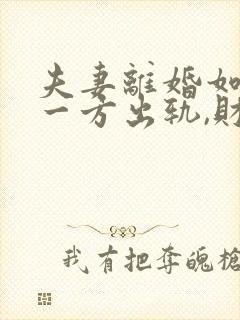 夫妻離婚如
一方出轨,財
我有把夺魄槍